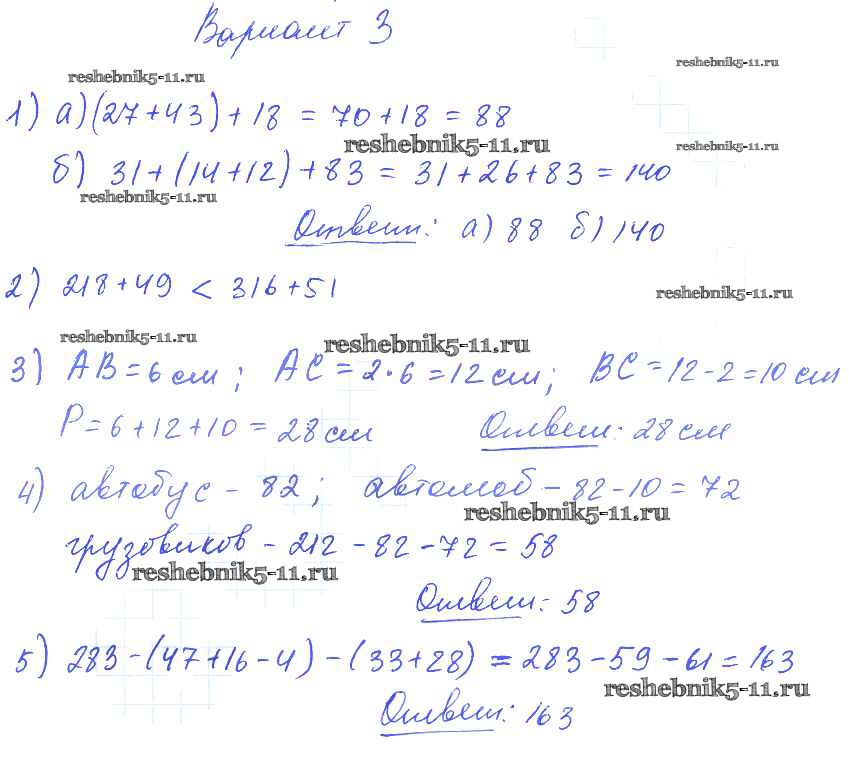 Вариант 3
reshebnik5-11.ru
reshebnik5-11.ru
1) а) (27+43)+18 = 70+18 = 88
reshebnik5-11.ru
reshebnik5-11.ru
б) 31+(14+12)+83 = 31+26+83 = 140
reshebnik5-11.ru
Ответ: а) 88 б) 140
2) 218+49 < 316+51
reshebnik5-11.ru
reshebnik5-11.ru
reshebnik5-11.ru
3) AB=6 см; AC=2·6=12 см; BC=12-2=10 см
P=6+12+10=28 см Ответ: 28 см
4) автобус - 82; автомоб - 82-10=72
reshebnik5-11.ru
грузовиков - 212-82-72=58
reshebnik5-11.ru
Ответ: 58
5) 283-(47+16-4)-(33+28) = 283-59-61=163
reshebnik5-11.ru
Ответ: 163